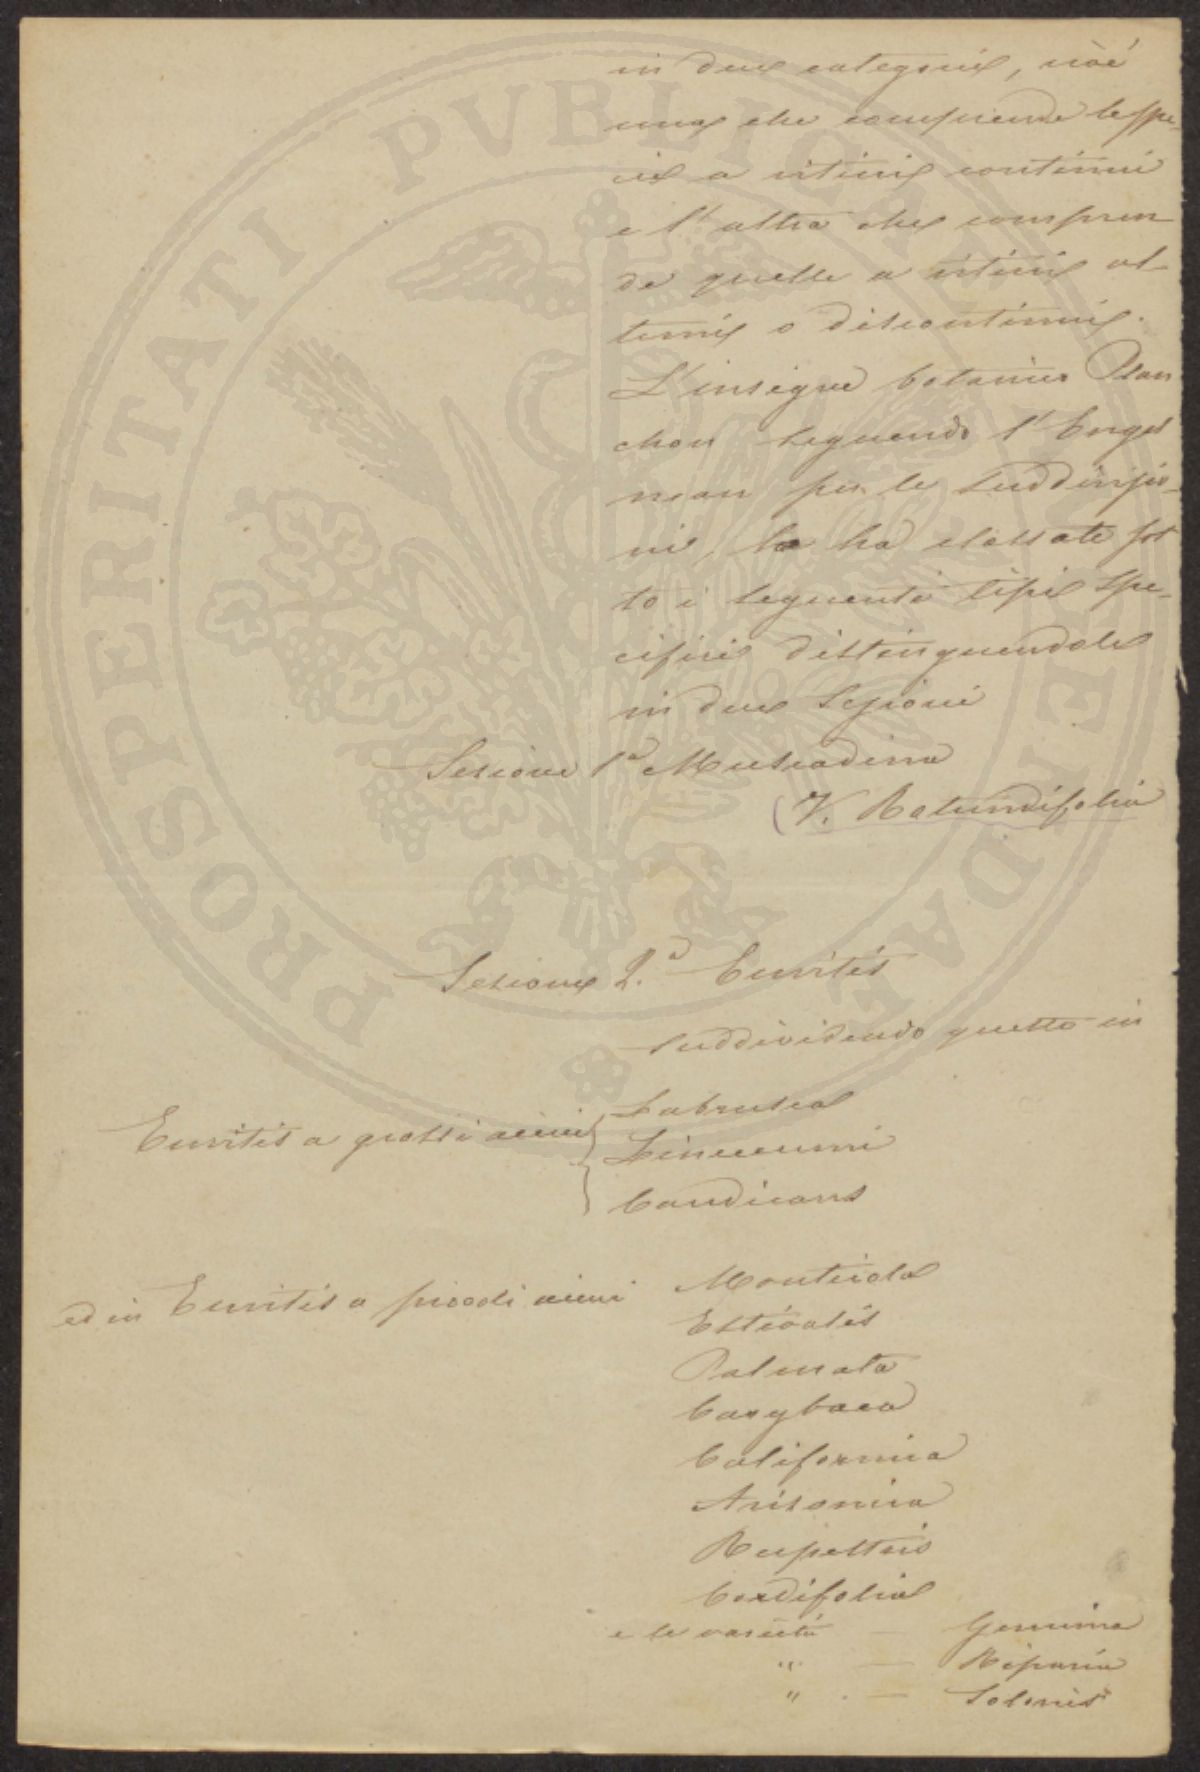 in due categorie, cioè
una che comprende le spe-
cie a viticci continui
e l'altra che compren
de quelle a viticci al-
terni o discontinui.
L'insigne botanico Plan
chon seguendo l'Engel
man per le suddivisio-
ni, le ha classate sot
to i seguenti tipi spe-
cifici distinguendole
in due Sezioni
Sezione 1ª Muscadinia
(V. Rotundifolia
Sezione 2.ª Euvitis
suddividendo questa in
Euvitis a grossi acini { Labrusca
Lincecumi
Candicans
ed in Euvitis a piccoli acini Monticola
Estivalis
Palmata
Caribaea
California
Arizonica
Rupestris
Cordifolia
e le varietà — Genuina
" — Riparia
" — Solonis
PROSPERITATI PVBLICAE AVGENDAE